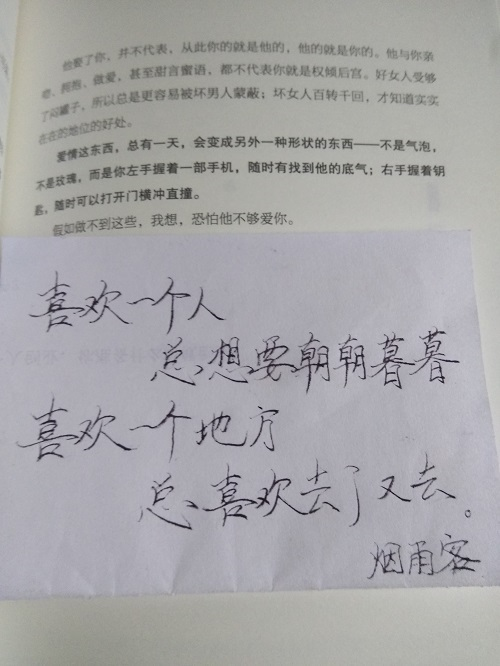 他娶了你，并不代表，从此你的就是他的，他的就是你的。他与你亲
吻、拥抱、做爱，甚至甜言蜜语，都不代表你就是权倾后宫。好女人受够
了闷罐子，所以总是更容易被坏男人蒙蔽；坏女人百转千回，才知道实实
在在的地位的好处。
爱情这东西，总有一天，会变成另外一种形状的东西——不是气泡，
不是玫瑰，而是你左手握着一部手机，随时有找到他的底气；右手握着钥
匙，随时可以打开门横冲直撞。
假如做不到这些，我想，恐怕他不够爱你。
喜欢一个人
总想要朝朝暮暮
喜欢一个地方
总喜欢去了又去。
烟雨客